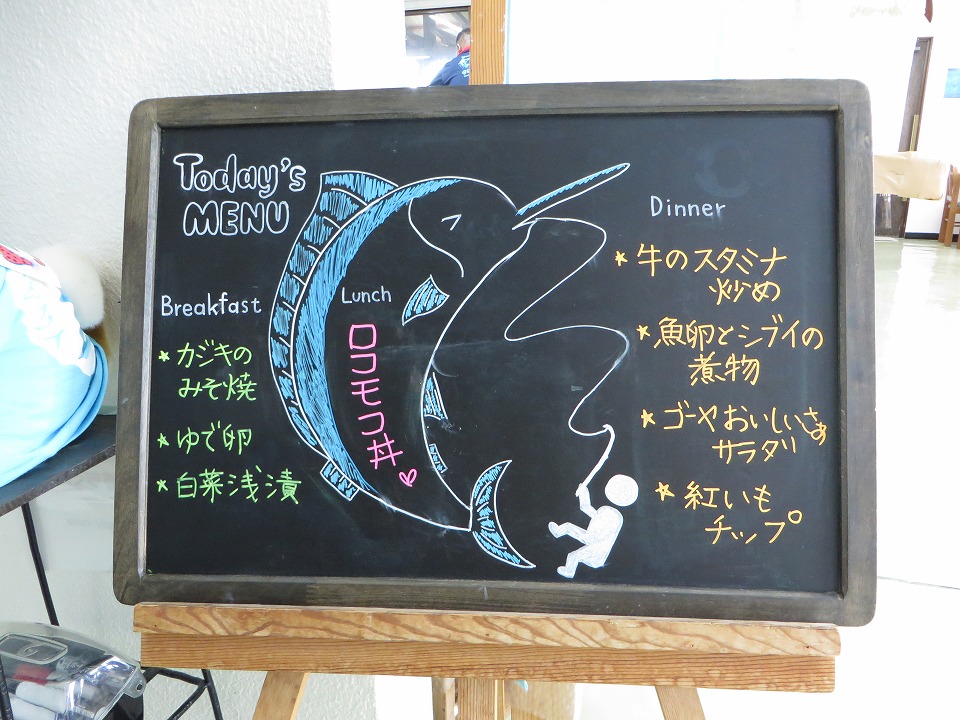 Today's
MENU
Breakfast
★カジキの
みそ焼
★ゆで卵
★白菜浅漬
Lunch
ロコモコ丼♡
Dinner
★牛のスタミナ
炒め
★魚卵とシブイの
煮物
★ゴーヤおいしいさぁ
サラダ
★紅いも
チップ